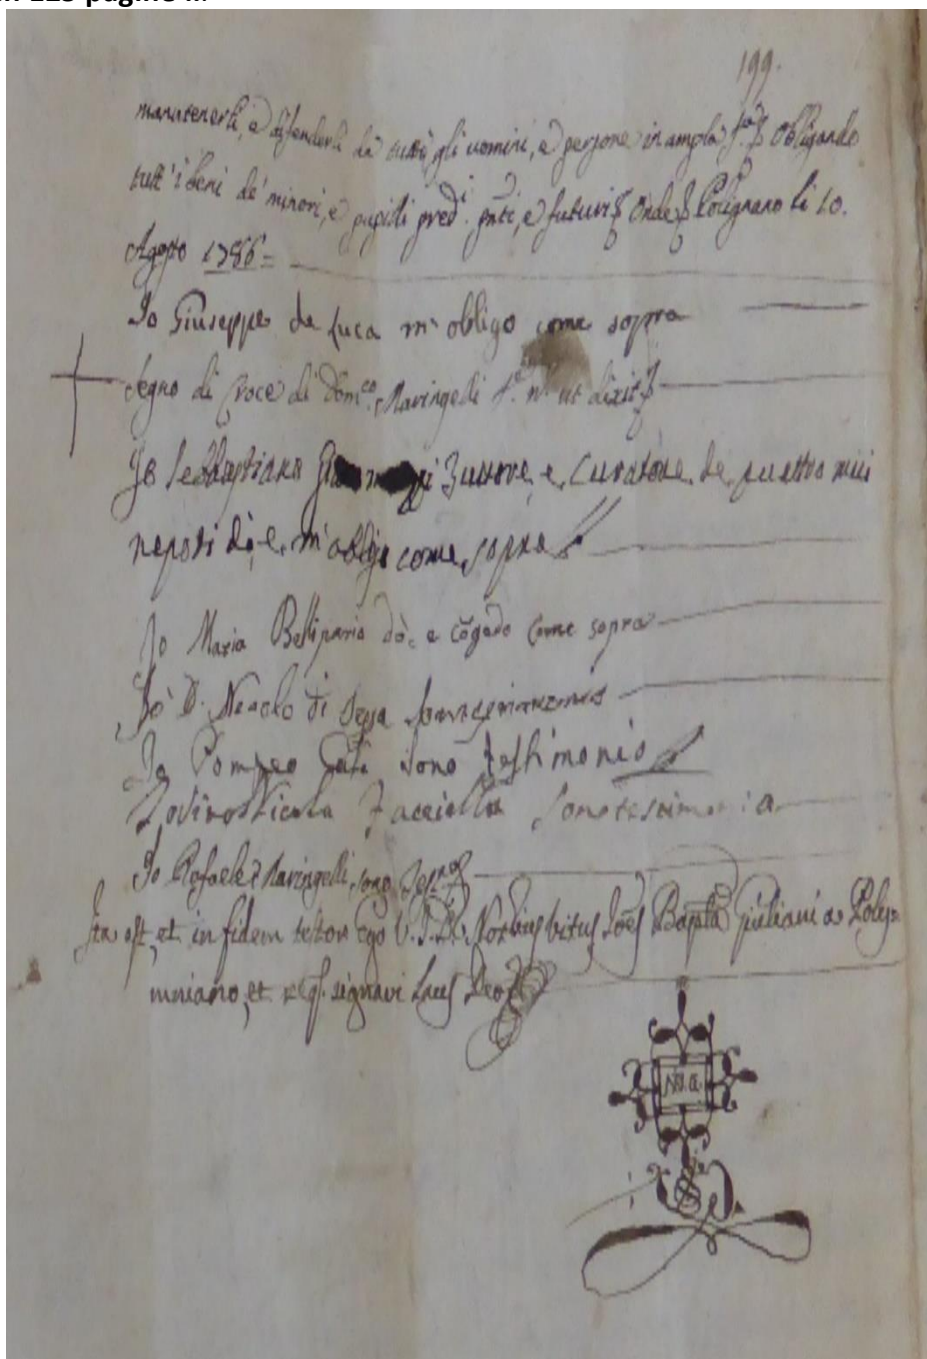 199.
manutenerli, e difenderli da tutti gli uomini, e persone in ampla f.a § Obligando
tutt'i beni de' minori, e pupilli pred.i pnti, e futuri § Onde § Polignano li 10.
Agosto 1786 =
Io Giuseppe de Luca m'obligo come sopra
Segno di Croce di Dom.co Maringelli ut dixit §
Io Sebbastiano Tutore, e, Curatore, de, quattro miei
nepoti dò, e, m'obligo come, sopra
Io Maria Bellipario dò, e cõgedo come sopra
Io D. di Sessa
Io Pompeo sono testimonio
Nicola sono testimonio
Io Rafaele Maringelli, sono
Ita est, et in fidem testor Ego U.J.D. Notarius Vitus Joẽs Bapta Giuliani a Polig
mniano, et signavi Laus Deo